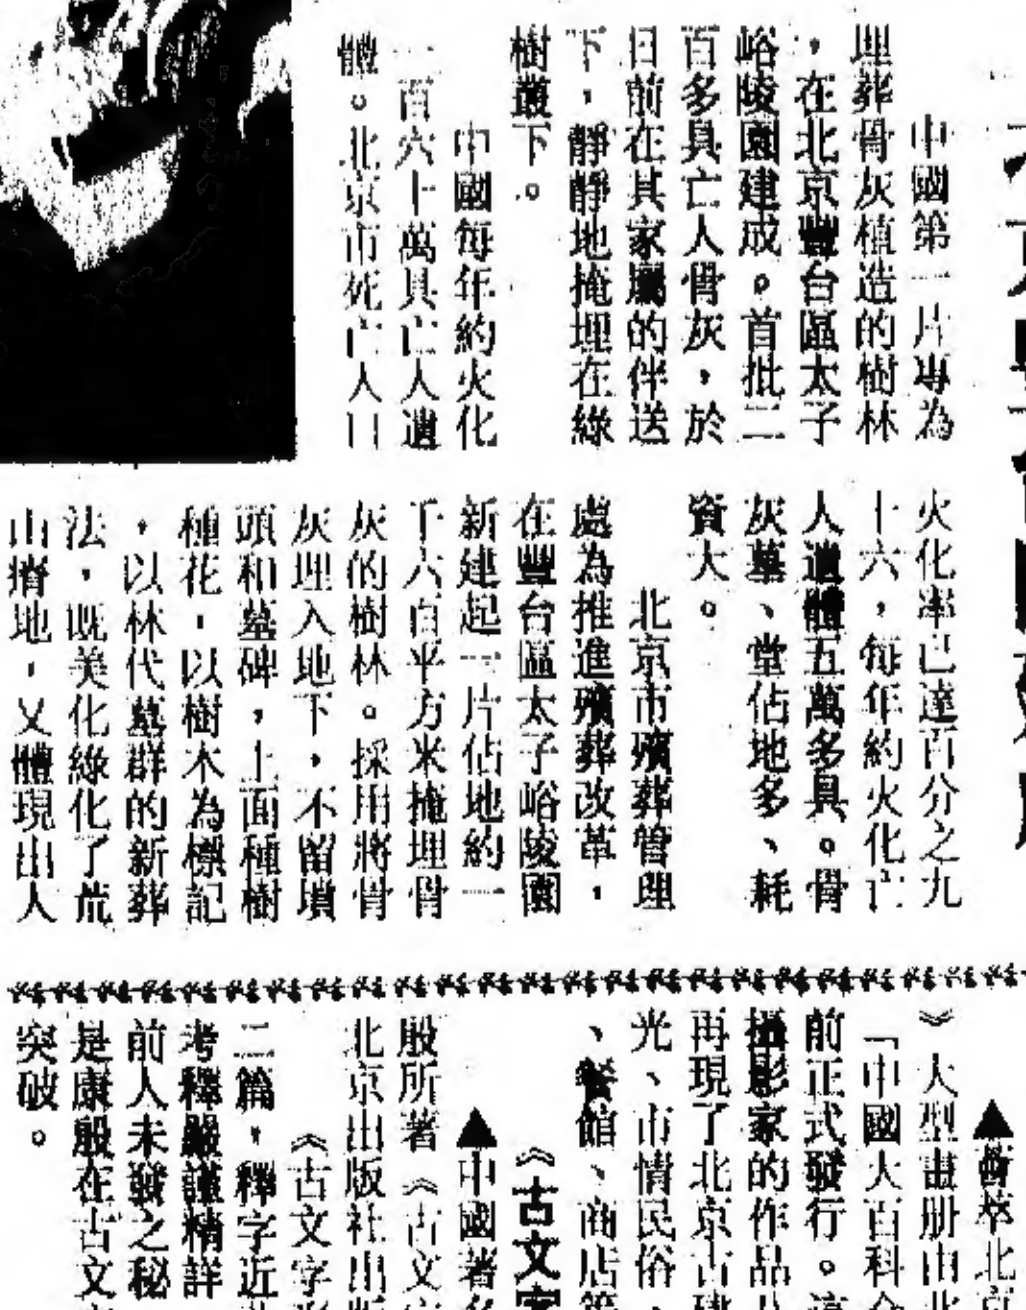 中國第一片專為
埋葬骨灰植造的樹林
，在北京豐台區太子
峪陵園建成。首批二
百多具亡人骨灰，於
日前在其家屬的伴送
下，靜靜地掩埋在綠
樹叢下。
中國每年約火化
一百六十萬具亡人遺
體。北京市死亡人口
火化率已達百分之九
十六，每年約火化亡
人遺體五萬多具。骨
灰墓、堂佔地多、耗
資大。
北京市殯葬管理
處為推進殯葬改革，
在豐台區太子峪陵園
新建起一片佔地約一
千六百平方米掩埋骨
灰的樹林。採用將骨
灰埋入地下，不留墳
頭和墓碑，上面種樹
種花，以樹木為標記
，以林代墓群的新葬
法，既美化綠化了荒
山瘠地，又體現出人
▲薈萃北京
》大型畫册由北
「中國大百科全
前正式發行。這
攝影家的作品
再現了北京古建
光、市情民俗、
、餐館、商店等
《古文字
▲中國著名
殷所著《古文字
北京出版社出版
《古文字
二篇，釋字近
考釋嚴謹精詳
前人未發之秘
是康殷在古文字
突破。